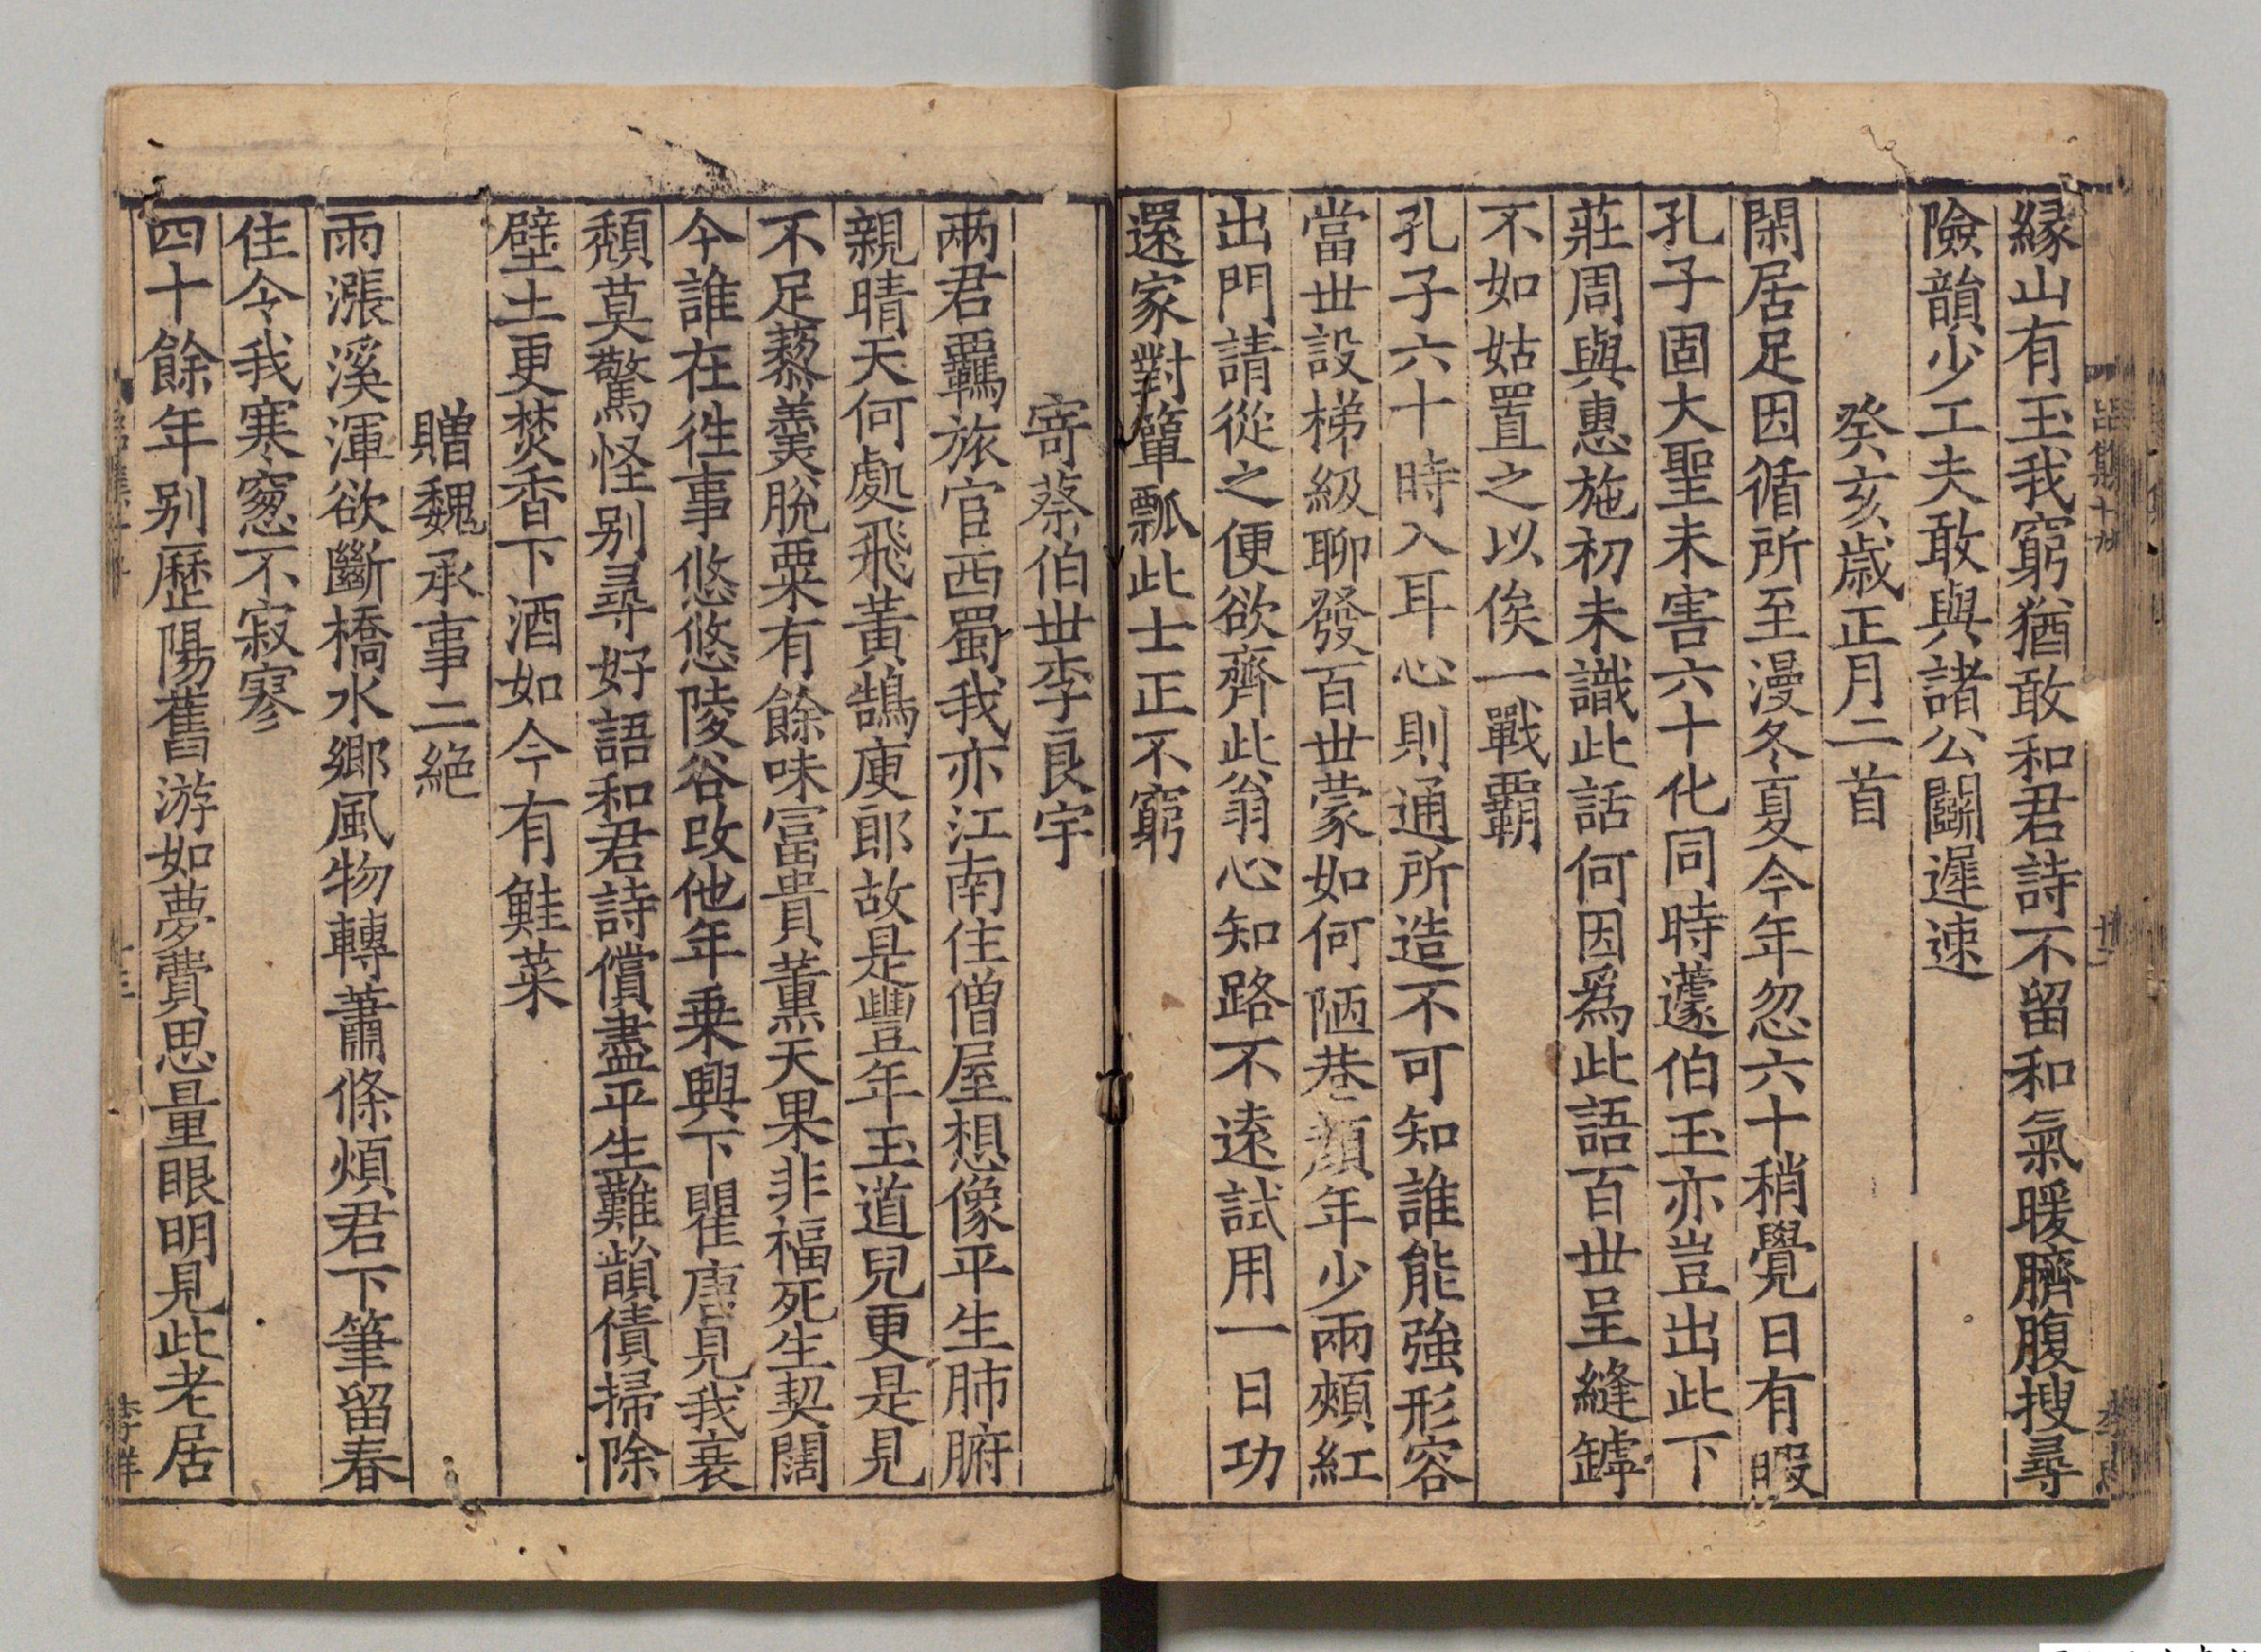 緣山有玉我窮猶敢和君詩不留和氣暖臍腹搜尋
險韻少工夫敢與諸公鬬遲速
癸亥歲正月二首
閑居足因循所至漫冬夏今年忽六十稍覺日有暇
孔子固大聖未害六十化同時蘧伯玉亦豈出此下
莊周與惠施初未識此話何因爲此語百世呈縫罅
不如姑置之以俟一戰霸
孔子六十時入耳心則通所造不可知誰能強形容
當世設梯級聊發百世蒙如何陋巷顏年少兩頰紅
出門請從之便欲齊此翁心知路不遠試用一日功
還家對簞瓢此士正不窮
寄蔡伯世李良宇
兩君羈旅官西蜀我亦江南住僧屋想像平生肺腑
親晴天何處飛黃鵠庾郎故是豐年玉道兒更是見
不足藜羹脫粟有餘味冨貴薰天果非福死生契闊
今誰在徃事悠悠陵谷改他年乗興下瞿唐見我衰
頹莫驚怪别尋好語和君詩償盡平生難韻債掃除
壁土更焚香下酒如今有鮭菜
贈魏承事二絕
雨漲溪渾欲斷橋水鄉風物轉蕭條煩君下筆留春
住令我寒窻不寂寥
四十餘年别歷陽舊游如夢費思量眼明見此老居